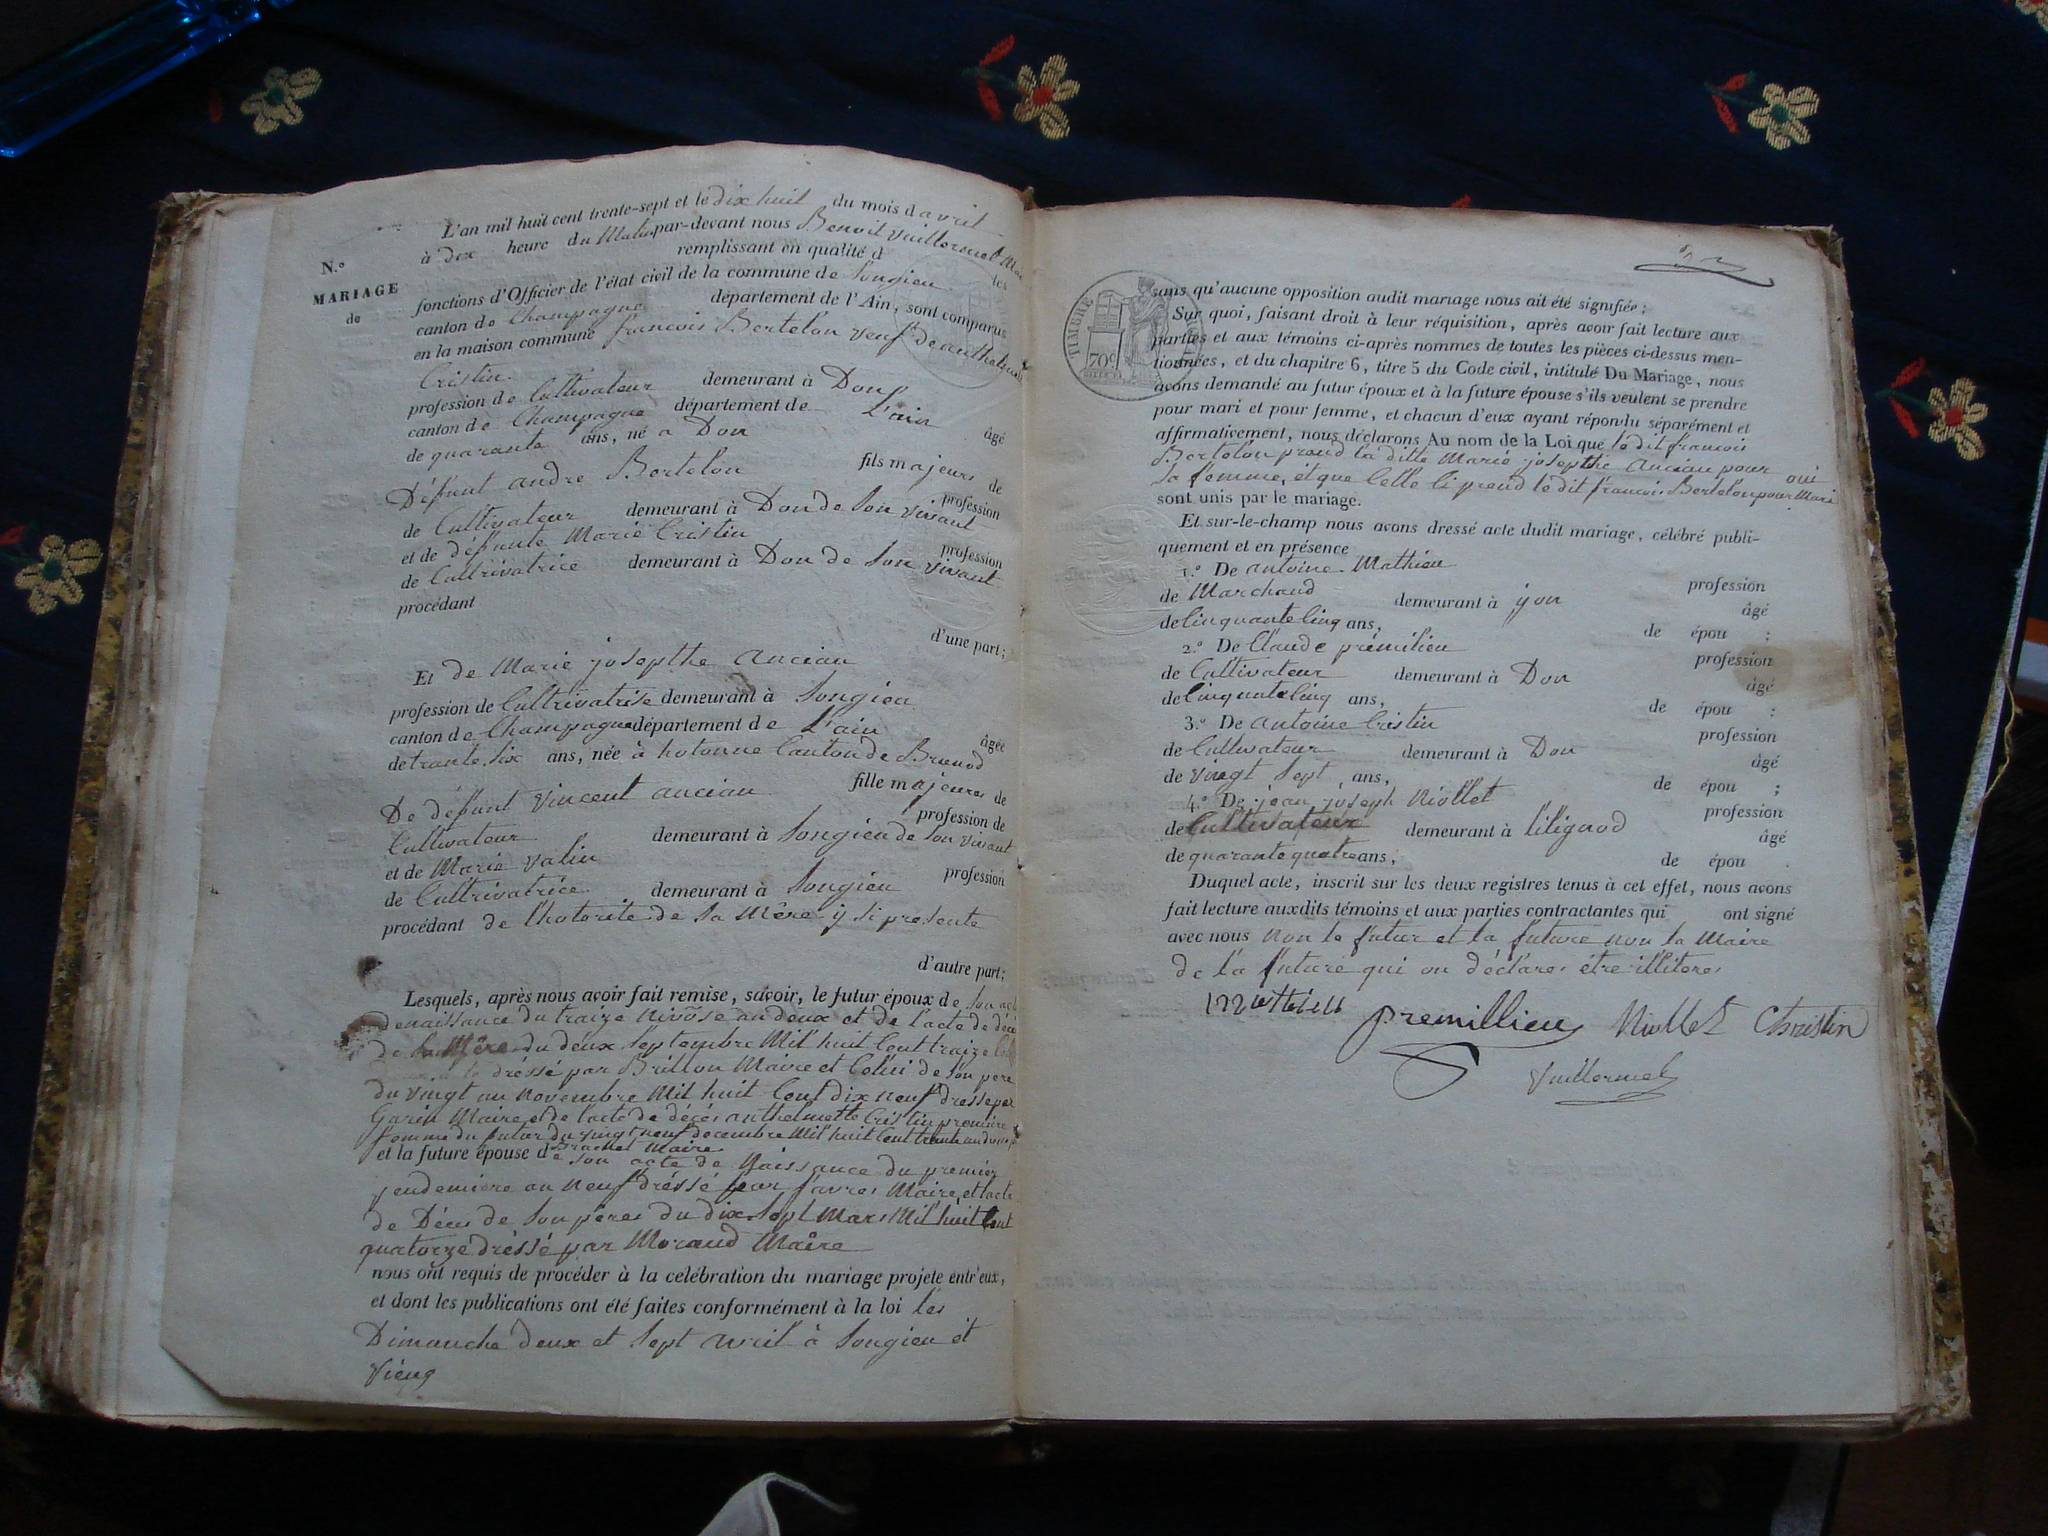 N.°
MARIAGE
de
L'an mil huit cent trente-sept et le dix huit du mois d avril
à dix heure du Matin par-devant nous Benoit Vuillermet Mai
remplissant en qualité d les
fonctions d'Officier de l'état civil de la commune de Songieu
canton de Champagne département de l'Ain, sont comparus
en la maison commune francois Bertelon veuf De anthelmette
Cristin.
profession de Cultivateur demeurant à Don
canton de Champagne département de L'ain âgé
de quarante ans, né a Don
fils majeurs de
Défunt andre Bertelon profession
de Cultivateur demeurant à Don de son vivant
et de défunte Marie Cristin profession
de Cultrivatrice demeurant à Don de son vivant
procédant
d'une part;
Et de Marie josepthe ancian
profession de Cultrivatrise demeurant à Songieu
canton de Champagne département de L'ain âgée
de trante six ans, née à hotonne Canton de Brenod
fille majeures de
De défunt Vincent ancian profession de
Cultivateur demeurant à Songieu de son vivant
et de Marie Valin profession
de Cultrivatrice demeurant à Songieu
procédant de l'hotorite de sa Mère y si presente
d'autre part;
Lesquels, après nous avoir fait remise, savoir, le futur époux de son act
de naissance du traize Nivose an deux et de l'acte de déce
de sa Mère du deux septembre Mil huit Cent traize
dréssé par Brillon Maire et Celui de son pere
du vingt un novembre Mil huit Cent dix neuf dressé par
Garin Maire et de l'acte de décés anthelmette Cristin premiere
femme du futur du vingt neuf decembre Mil huit Cent trente
Maire
et la future épouse de son acte de Naissance du premier
jendemiere an neuf dréssé par favres Maire, et l'acte
de Déces de son péres du dix sept Mars Mil huit Cent
quatorze dréssé par Moraud Maire
nous ont requis de procéder à la celébration du mariage projete entr'eux,
et dont les publications ont été faites conformément à la loi les
Dimanche deux et sept avril à Songieu et
Vieug
TIMBRE
70c
sans qu'aucune opposition audit mariage nous ait été signifiée;
Sur quoi, faisant droit à leur réquisition, après avoir fait lecture aux
parties et aux témoins ci-après nommes de toutes les pièces ci-dessus men-
tionnées, et du chapitre 6, titre 5 du Code civil, intitulé Du Mariage, nous
avons demandé au futur époux et à la future épouse s'ils veulent se prendre
pour mari et pour femme, et chacun d'eux ayant répondu séparément et
affirmativement, nous déclarons Au nom de la Loi que le dit francois
Bertelon prend la ditte Marie josepthe ancian pour oui
sa femme, et que Celle Ci prend le dit francois Bertelon pour Mari
sont unis par le mariage.
Et sur-le-champ nous avons dressé acte dudit mariage, célébré publi-
quement et en présence
1.° De antoine Mathieu profession
de Marchaud demeurant à yon âgé
de Cinquante Cinq ans, de épou ;
2.° De Claude prémilieu profession
de Cultivateur demeurant à Don âgé
de Cinquate Cinq ans, de épou ;
3.° De antoine Cristin profession
de Cultivateur demeurant à Don âgé
de vingt sept ans, de épou ;
4.° De jean joseph Niollet profession
de Cultivateur demeurant à lilignod âgé
de quarante quatre ans, de épou .
Duquel acte, inscrit sur les deux registres tenus à cet effet, nous avons
fait lecture auxdits témoins et aux parties contractantes qui ont signé
avec nous non le futur et la future non la Maire
de la future qui on déclares étre illiteres
Premillieu Niollet Christin
Vuillermet